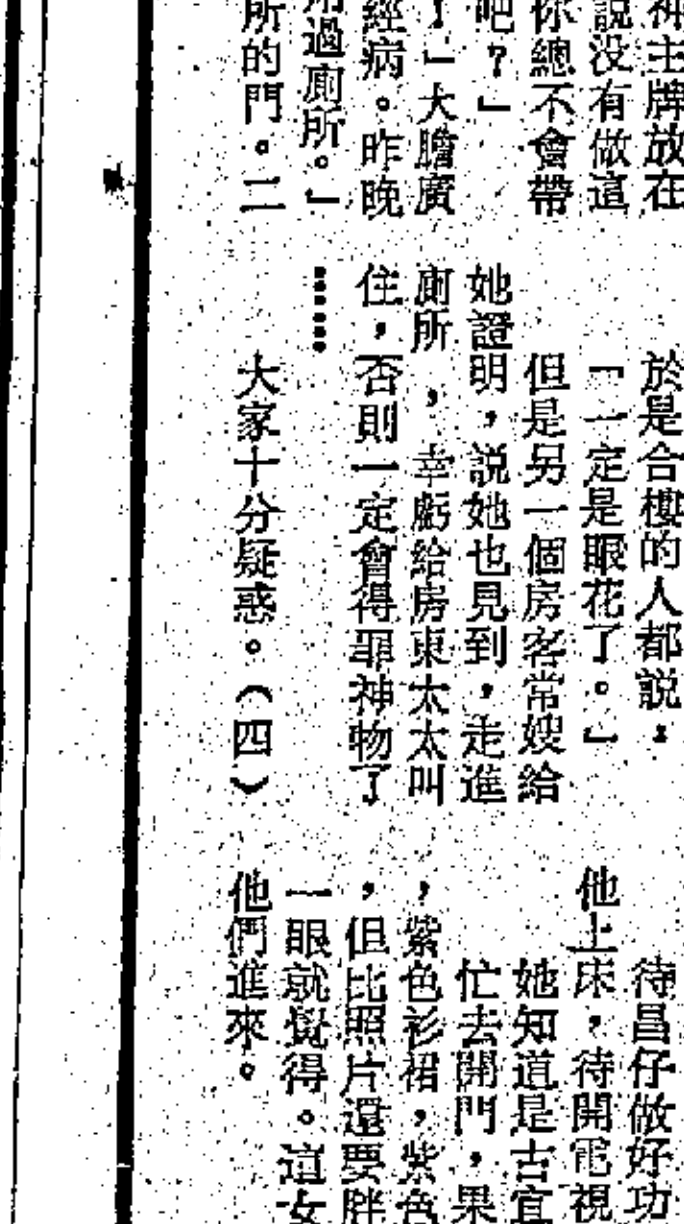 神主牌放在
說没有做這
你總不會帶
吧？」
！」大膽廣
經病。昨晚
用過廁所。」
所的門。二
於是合樓的人都説，
「一定是眼花了。」
但是另一個房客常嫂給
她證明，説她也見到，走進
廁所，幸虧給房東太太叫
住，否則一定會得罪神物了
……
大家十分疑惑。（四）
待昌仔做好功
他上床，待開電視
她知道是古宜
忙去開門，果
，紫色衫裙，紫色
，但比照片還要胖
一眼就覺得。這女
他們進來。